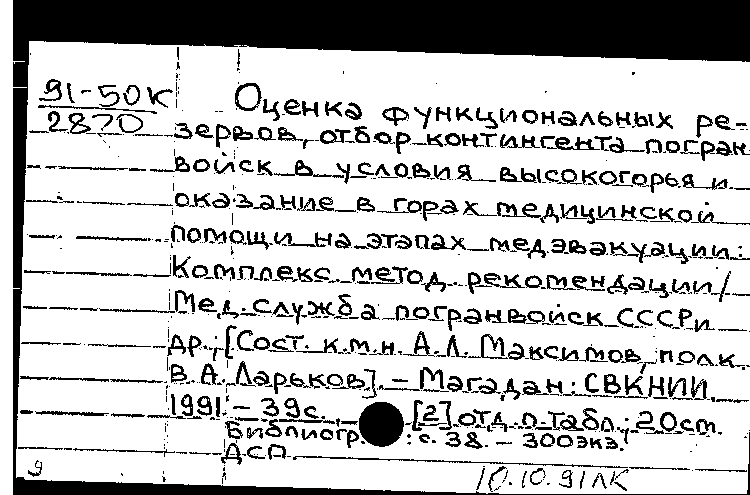 91-50К
2870
Оценка функциональных ре-
зервов, отбор контингента погран
войск в условия высокогорья и
оказание в горах медицинской
помощи на этапах медэвакуации:
Комплекс метод. рекомендации/
Мед. служба погранвойск СССР и
др.; [Сост. к.м.н. А.Л. Максимов, полк.
В.А. Ларьков]. – Магадан: СВКНИИ.
1991 – 39с. – [2] отд. л. табл.; 20см.
Библиогр. : с. 38. – 300экз.
ДСП.
9
10.10.91 ЛК